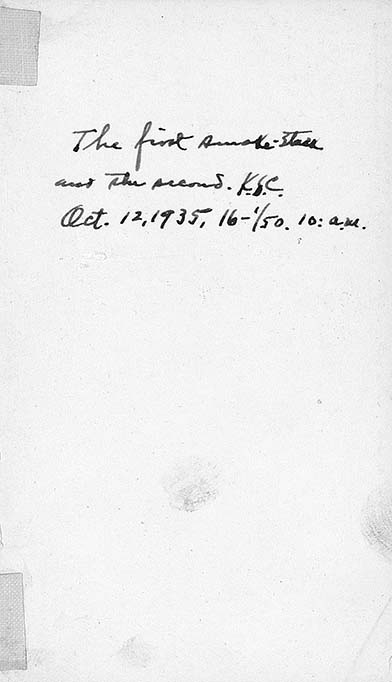 The first smoke-stack
and the second. K.G.C.
Oct. 12, 1935, 16-1/50. 10: a.m.